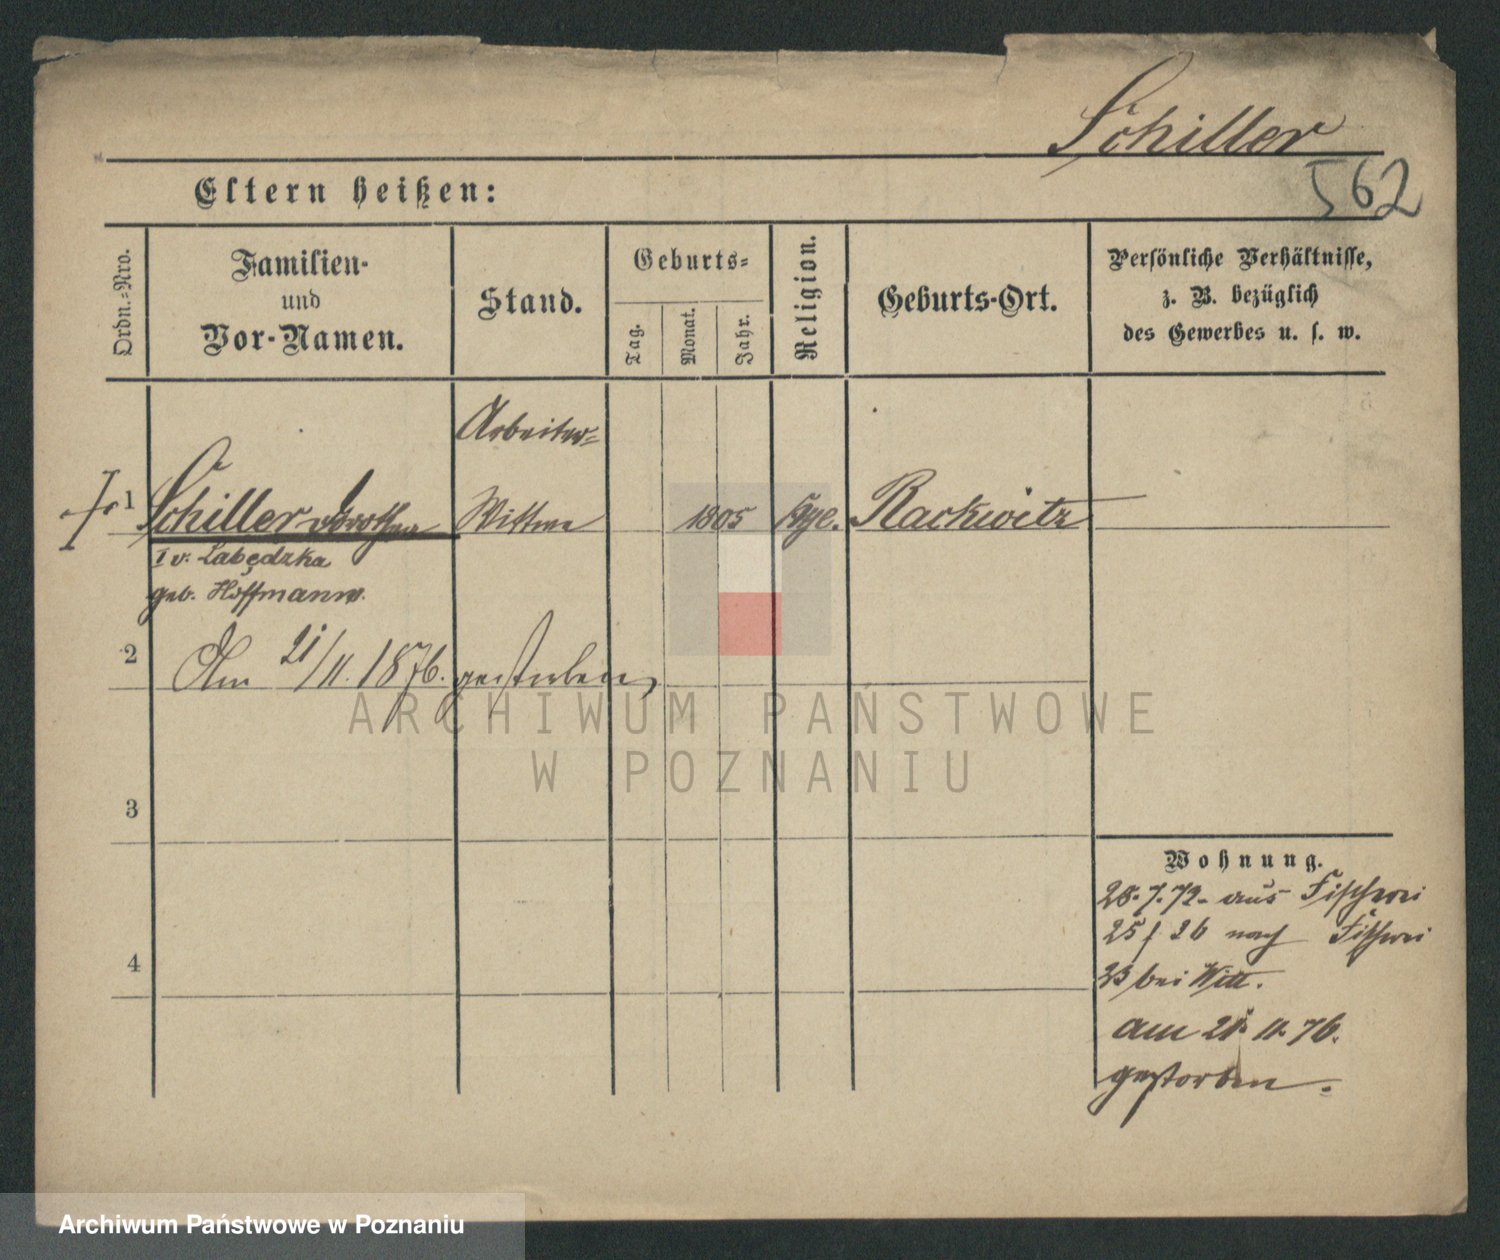 Schiller
562
Eltern heißen:
Ordn.-Nro.
Familien-
und
Vor-Namen.
Stand.
Geburts-
Tag.
Monat.
Jahr.
Religion.
Geburts-Ort.
Persönliche Verhältnisse,
z. B. bezüglich
des Gewerbes u. s. w.
Arbeiter-
1 Schiller Dorothea Wittwe 1805 Rackwitz
I v. Łabędzka
geb. Hoffmann
2 Am 21/11. 1876. gestorben
3
4
Wohnung.
28.7.72. aus Fischerei
25/26 nach Fischerei
23 bei Witt.
am 21. 11. 76.
gestorben.
ARCHIWUM PAŃSTWOWE
W POZNANIU
Archiwum Państwowe w Poznaniu